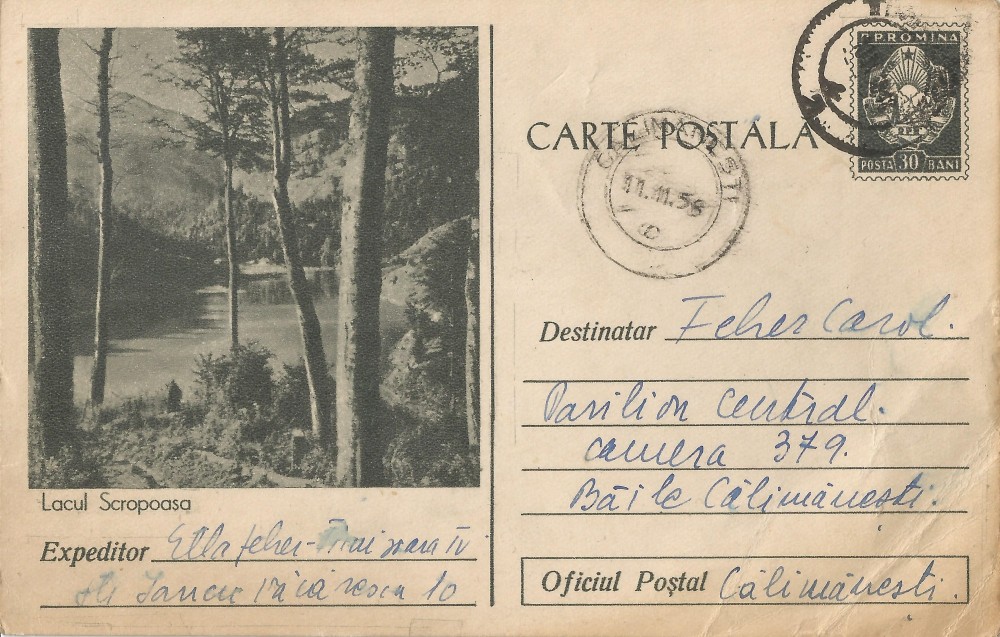 R.P.ROMINA
POSTA 30 BANI
CARTE POSTALA
CALIMANESTI
11.11.56
Lacul Scropoasa
Expeditor Ella feher - Timisoara IV
Str Iancu Văcărescu 10
Destinatar Feher Carol.
Pavilion Central.
camera 379.
Băile Călimănești.
Oficiul Poștal Călimănești.